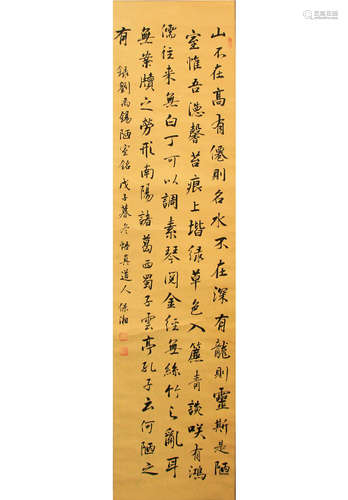 山不在高有僊則名水不在深有龍則靈斯是陋
室惟吾德馨苔痕上堦緑草色入簾青談咲有鴻
儒往来無白丁可以調素琴閲金經無絲竹之亂耳
無案牘之勞形南陽諸葛西蜀子雲亭孔子云何陋之
有
録劉禹錫陋室銘戊子暮冬悟真道人保湘